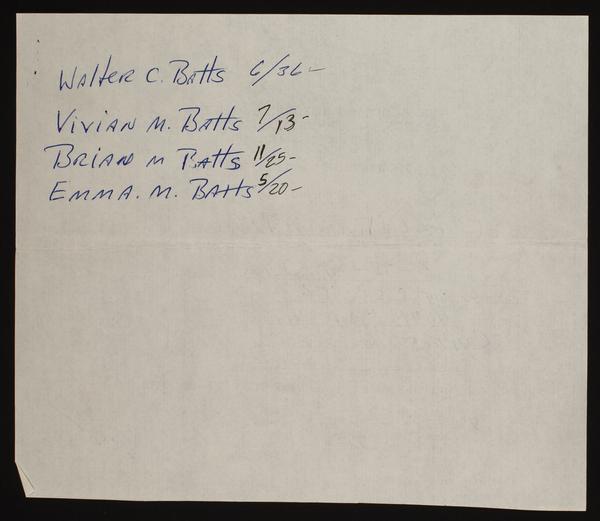 Walter C. Batts 6/36-
Vivian M. Batts 7/13-
Brian M Batts 11/25-
Emma. M. Batts 5/20-